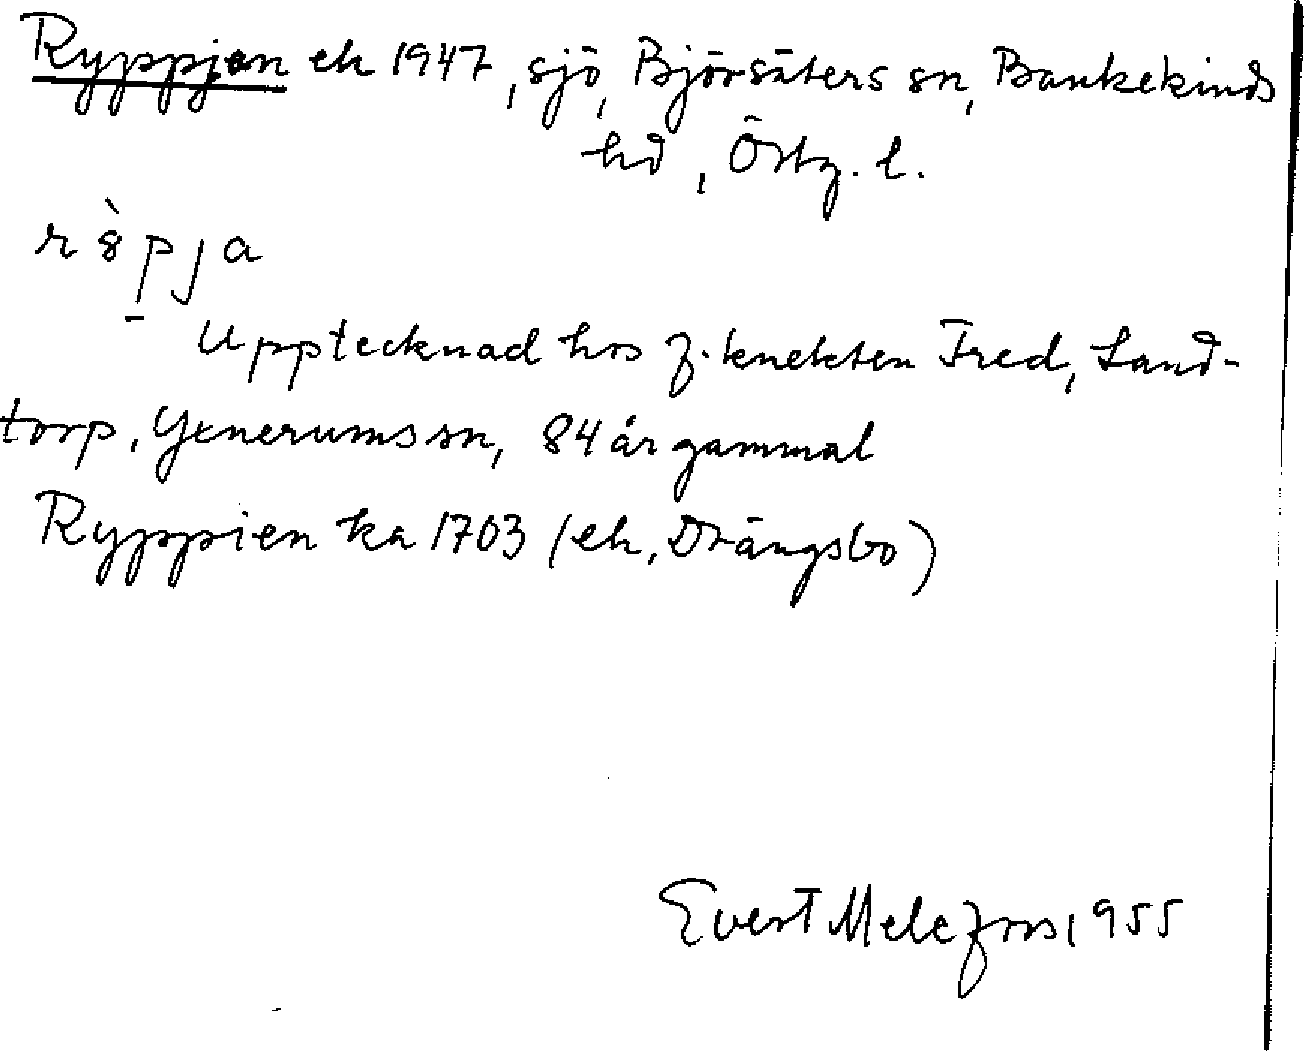 Ryppjen ek 1947, sjö, Björsäters sn, Bankekinds
hd, Östg. l.
r ꝸ̀ p j a
Upptecknad hos f. knekten Fred, Sand-
torp, Yxnerums sn, 84 år gammal
Ryppien ka 1703 (ek, Drängsbo)
Evert Melefors 1955